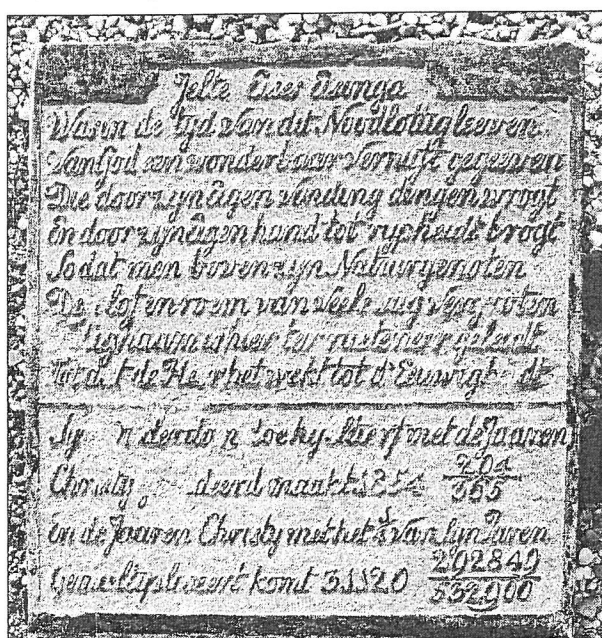 Jelte Eises Eisinga
Was in de tyd van dit Noodlottig leeven
Van God een wonderbaar vernuft gegeeven
Die door zyn eigen vinding dingen wrogt
En door zyn eigen hand tot rypheidt brogt
So dat men boven zyn Natuurgenoten
De lof en roem van veele zag vergroten
lighaam is hier ter ruste neer geleidt
Tot dat de Heer het wekt tot d'Eeuwigh dt
Sy n derdo n toe hy stierf met de Jaaren
Christy deerd maakt 1854 204/365
En de Jaaren Christy met het van syn Jaren
komt 31120 202849/532900